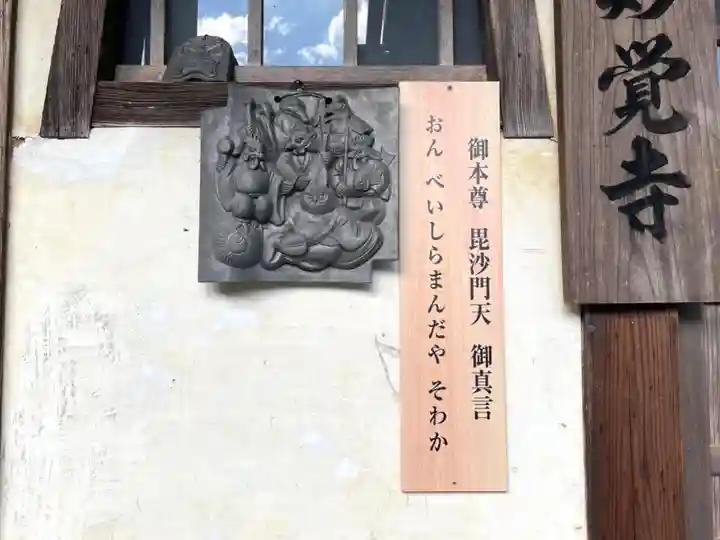 覚寺
御本尊 毘沙門天 御真言
おん べいしらまんだや そわか